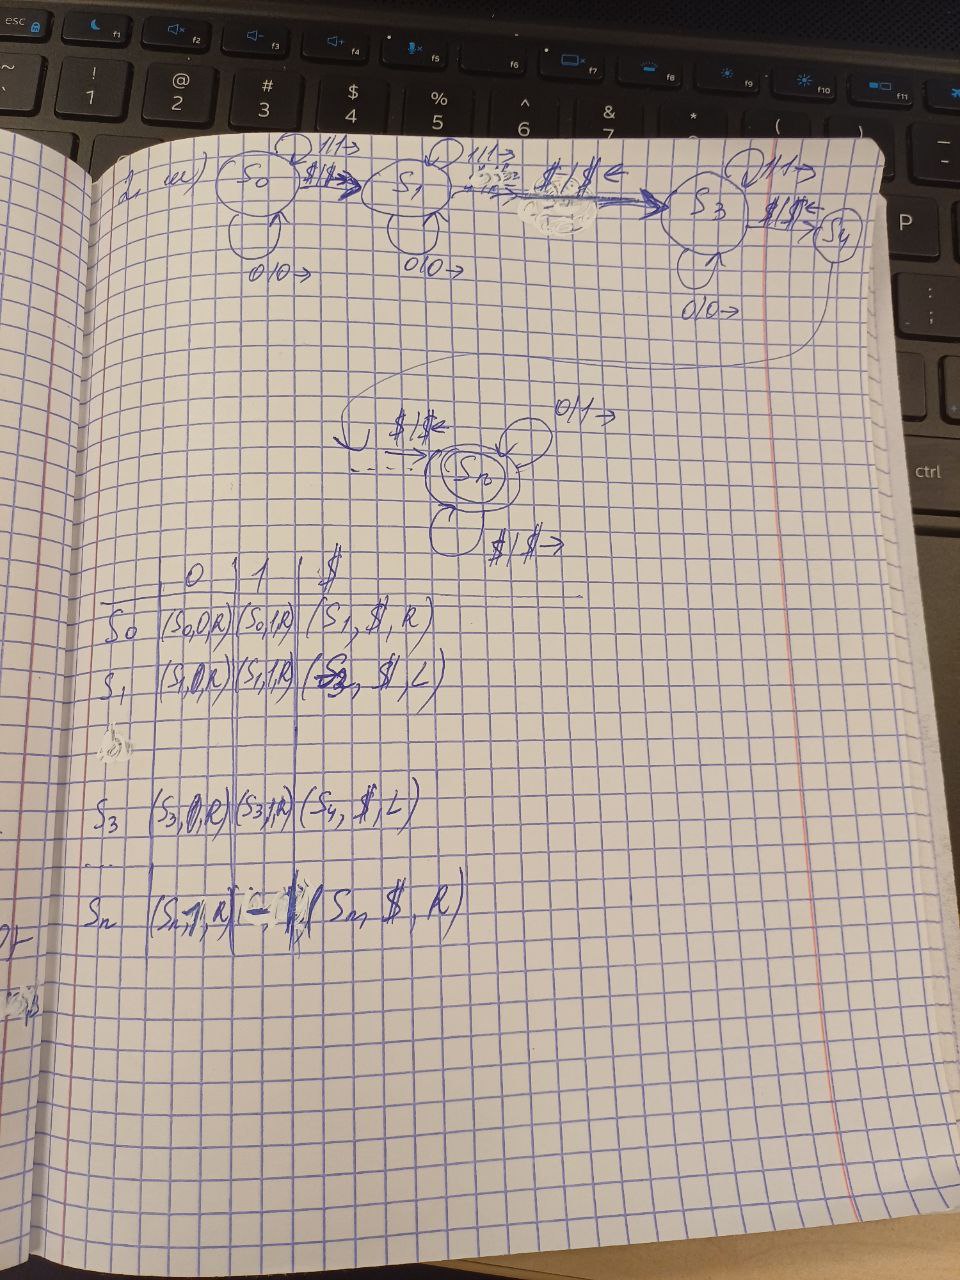 esc f1 f2 f3 f4 f5 f6 f7 f8 f9 f10 f11
~ ! @ # $ % ^ & * ( ) -
1 2 3 4 5 6 7
P
ctrl
S0 1|1→ $|$→ S1 1|1→ $|$← S3 1|1→ $|$← S4
0|0→ 0|0→ 0|0→
0|1→
$|$← Sn
$|$→
0 1 $
S0 (S0,0,R) (S0,1,R) (S1, $, R)
S1 (S1,0,R) (S1,1,R) (S3, $, L)
S3 (S3,0,R) (S3,1,R) (S4, $, L)
...
Sn (Sn,1,R) - (Sn, $, R)